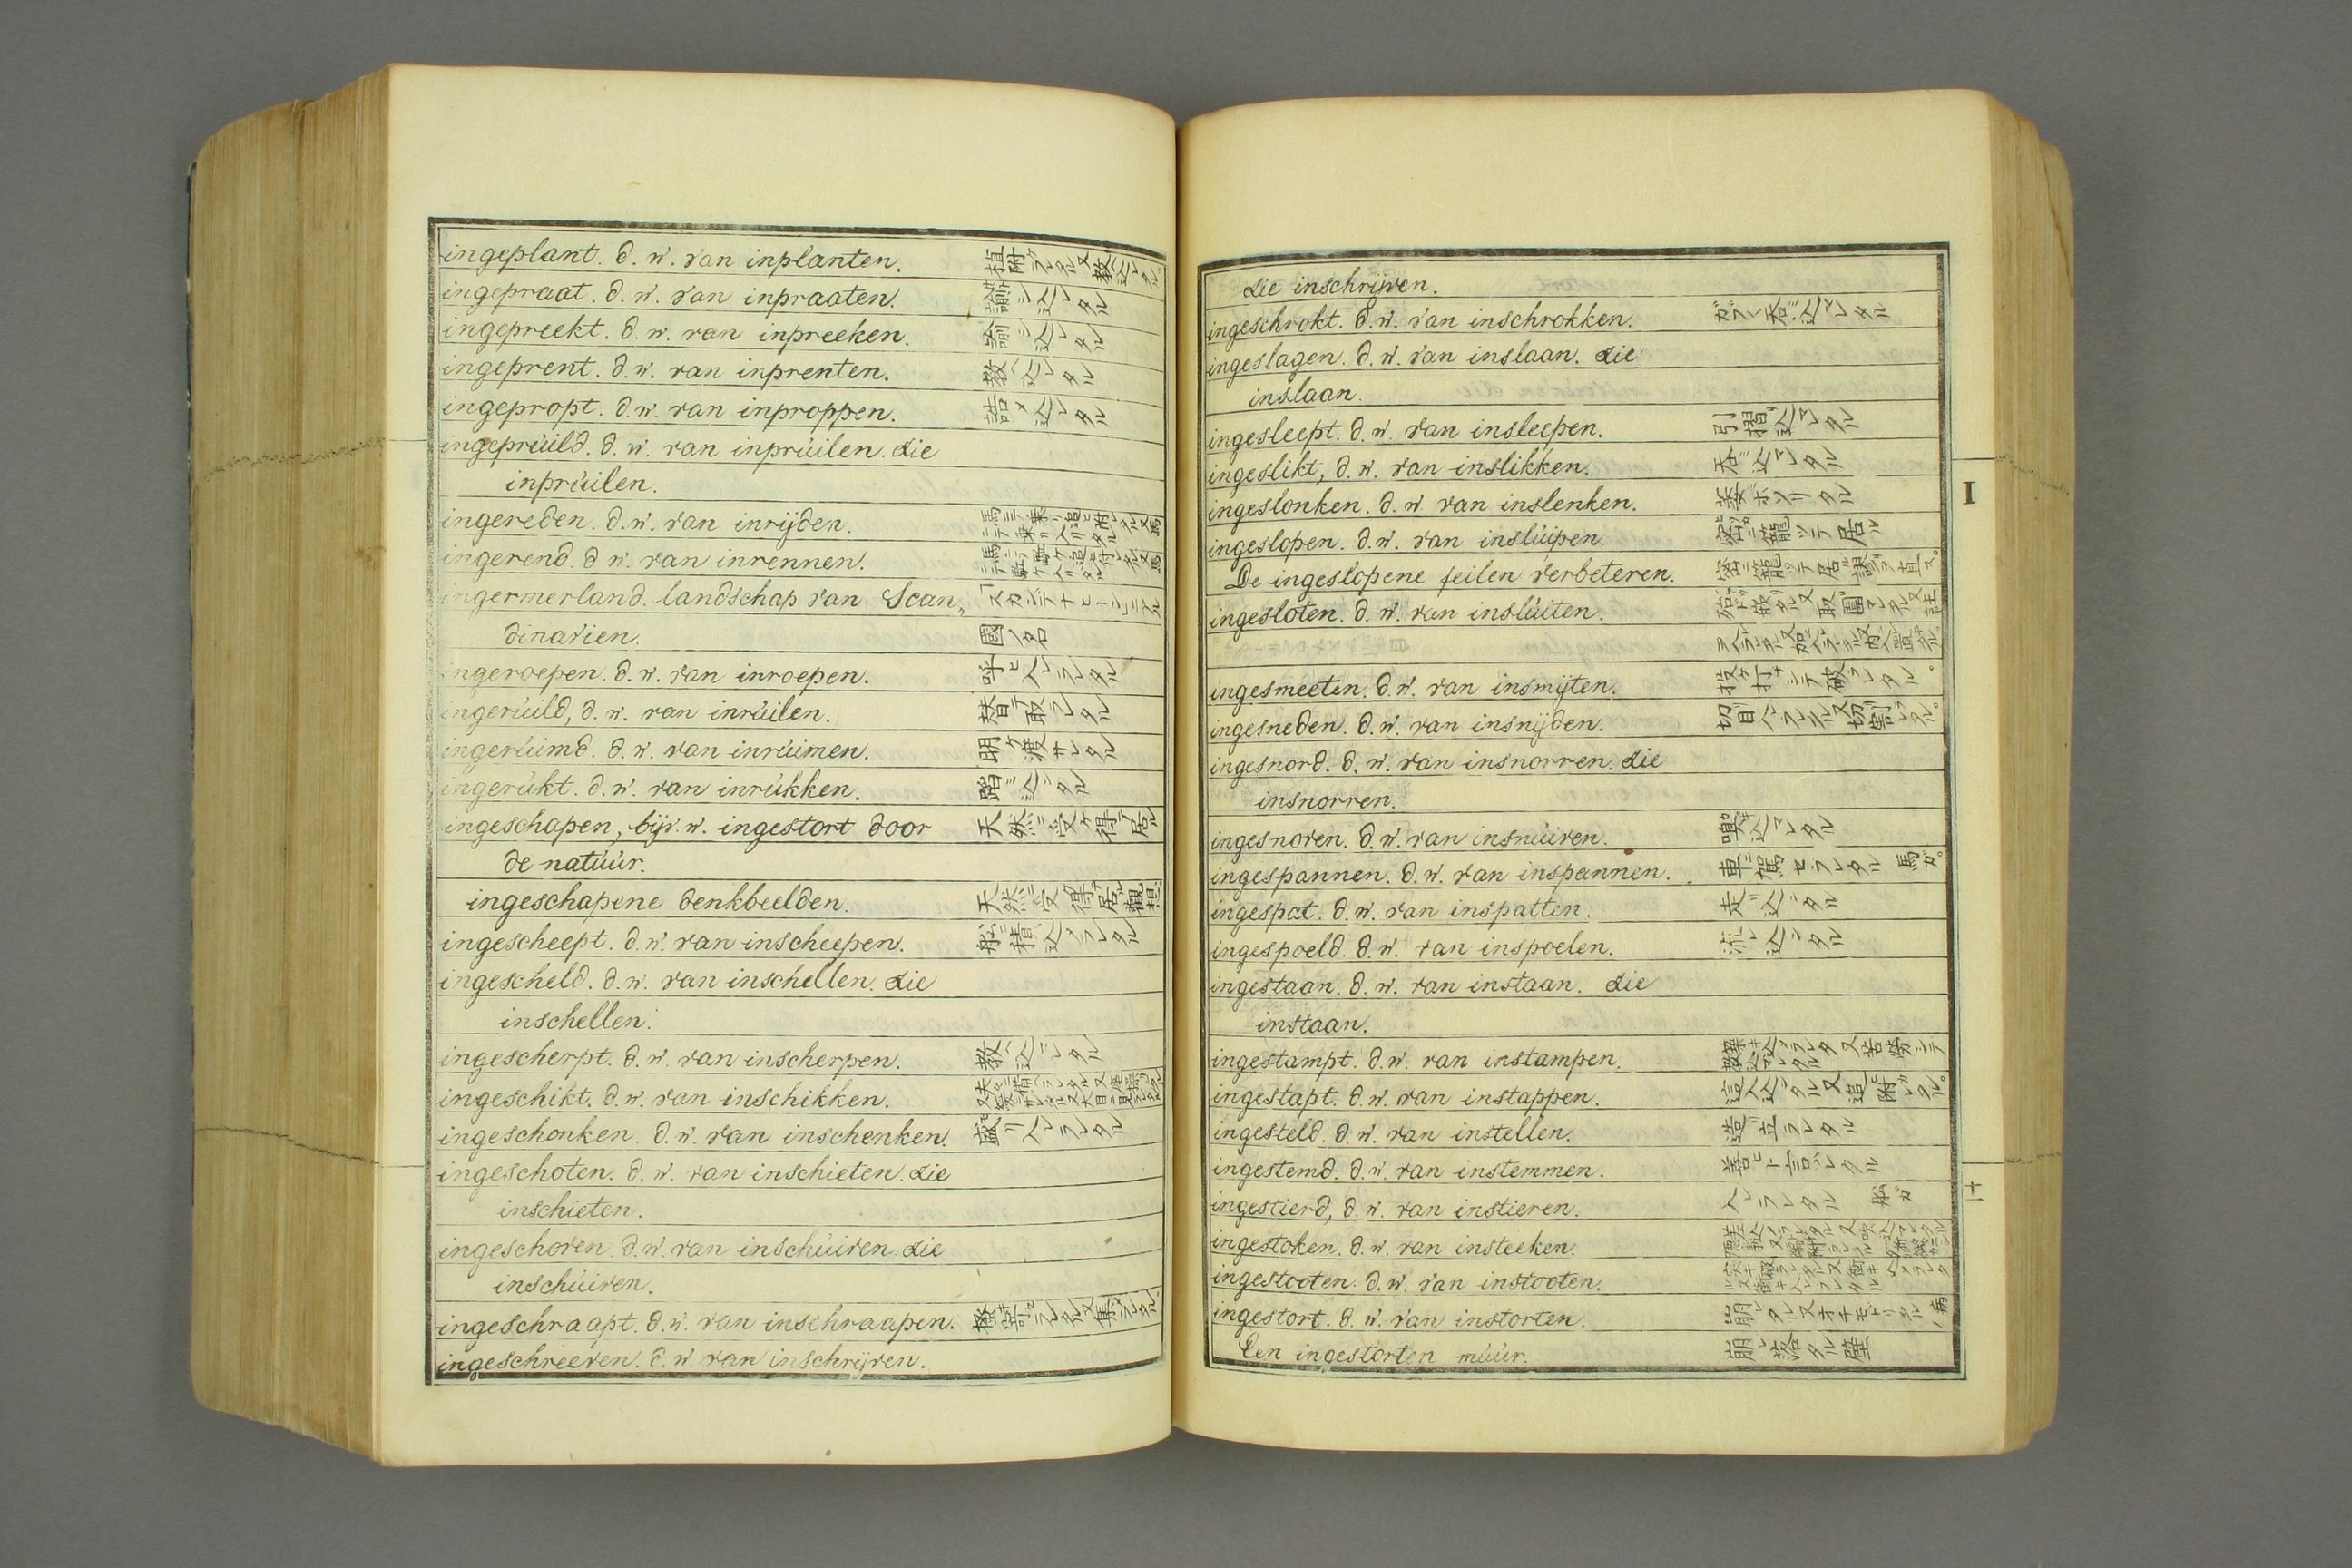 ingeplant. d. w. van inplanten. 植附ラレタル又教込レタル。
ingepraat. d. w. van inpraaten. 諭シ込レタル
ingepreekt. d. w. van inpreeken. 諭シ込レタル
ingeprent. d. w. van inprenten. 教ヘ込レタル
ingepropt. d. w. van inproppen. 詰メ込レタル
ingeprúild. d. w. van inprúilen. zie
inprúilen.
ingereden. d. w. van inrijden.
ingerend. d w. van inrennen.
ingermerland. landschap van Scan„ 「スカンデナヒーン」ニアル
dinavien. 國ノ名
ingeroepen. d. w. van inroepen. 呼ヒ入レラレタル
ingerúild, d. w. van inrúilen. 替テ取ラレタル
ingerúimd. d. w. van inrúimen. 明ケ渡サレタル
ingerúkt. d. w. van inrúkken. 蹈ミ込ンタル
ingeschapen, bijv. w. ingestort door 天然ニ受ケ得テ居ル
de natúúr.
ingeschapene denkbeelden. 天然ニ受ケ得テ居ル觀想
ingescheept. d. w. van inscheepen. 船ニ積込ラレタル
ingescheld. d. w. van inschellen. zie
inschellen.
ingescherpt. d. w. van inscherpen. 教ヘ込ラレタル
ingeschikt. d. w. van inschikken.
ingeschonken. d. w. van inschenken. 盛リ入レラレタル
ingeschoten. d. w. van inschieten. zie
inschieten.
ingeschoven. d. w. van inschúiven. zie
inschúiven.
ingeschraapt. d. w. van inschraapen.
ingeschreeven. d. w. van inschrijven.
zie inschrijven.
ingeschrokt. d. w. van inschrokken. ガブ〱呑ミ込マレタル
ingeslagen. d. w. van inslaan. zie
inslaan.
ingesleept. d. w. van insleepen. 引摺リ込マレタル
ingeslikt, d. w. van inslikken. 呑ミ込マレタル
ingeslonken. d. w. van inslenken. 萎ボメリタル
ingeslopen. d. w. van inslúipen. 密カニ籠ツテ居ル
De ingeslopene feilen verbeteren. 密カニ籠ツテ居ル誤リヲ直ス。
ingesloten. d. w. van inslúiten.
ingesmeeten. d. w. van insmijten. 投ケ打チシテ破ラレタル。
ingesneden. d. w. van insnijden. 切目入ラレタル又切割レタル。
ingesnord. d. w. van insnorren. zie
insnorren.
ingesnoven. d. w. van insnúiven. 嗅キ込マレタル
ingespannen. d. w. van inspannen. 車ニ駕セラレタル 馬ガ。
ingespat. d. w. van inspatten. 走リ込ンタル
ingespoeld. d. w. van inspoelen. 流レ込ンタル
ingestaan. d. w. van instaan. zie
instaan.
ingestampt. d. w. van instampen.
ingestapt. d. w. van instappen. 這入込ンタル又追附レタル。
ingesteld. d. w. van instellen. 造リ立ラレタル
ingestemd. d. w. van instemmen. 善ヒト言ハレタル
ingestierd, d. w. van instieren. 入レラレタル 船ガ
ingestoken. d. w. van insteeken.
ingestooten. d. w. van instooten.
ingestort. d. w. van instorten.
Een ingestorten múúr. 崩レ落タル壁
I